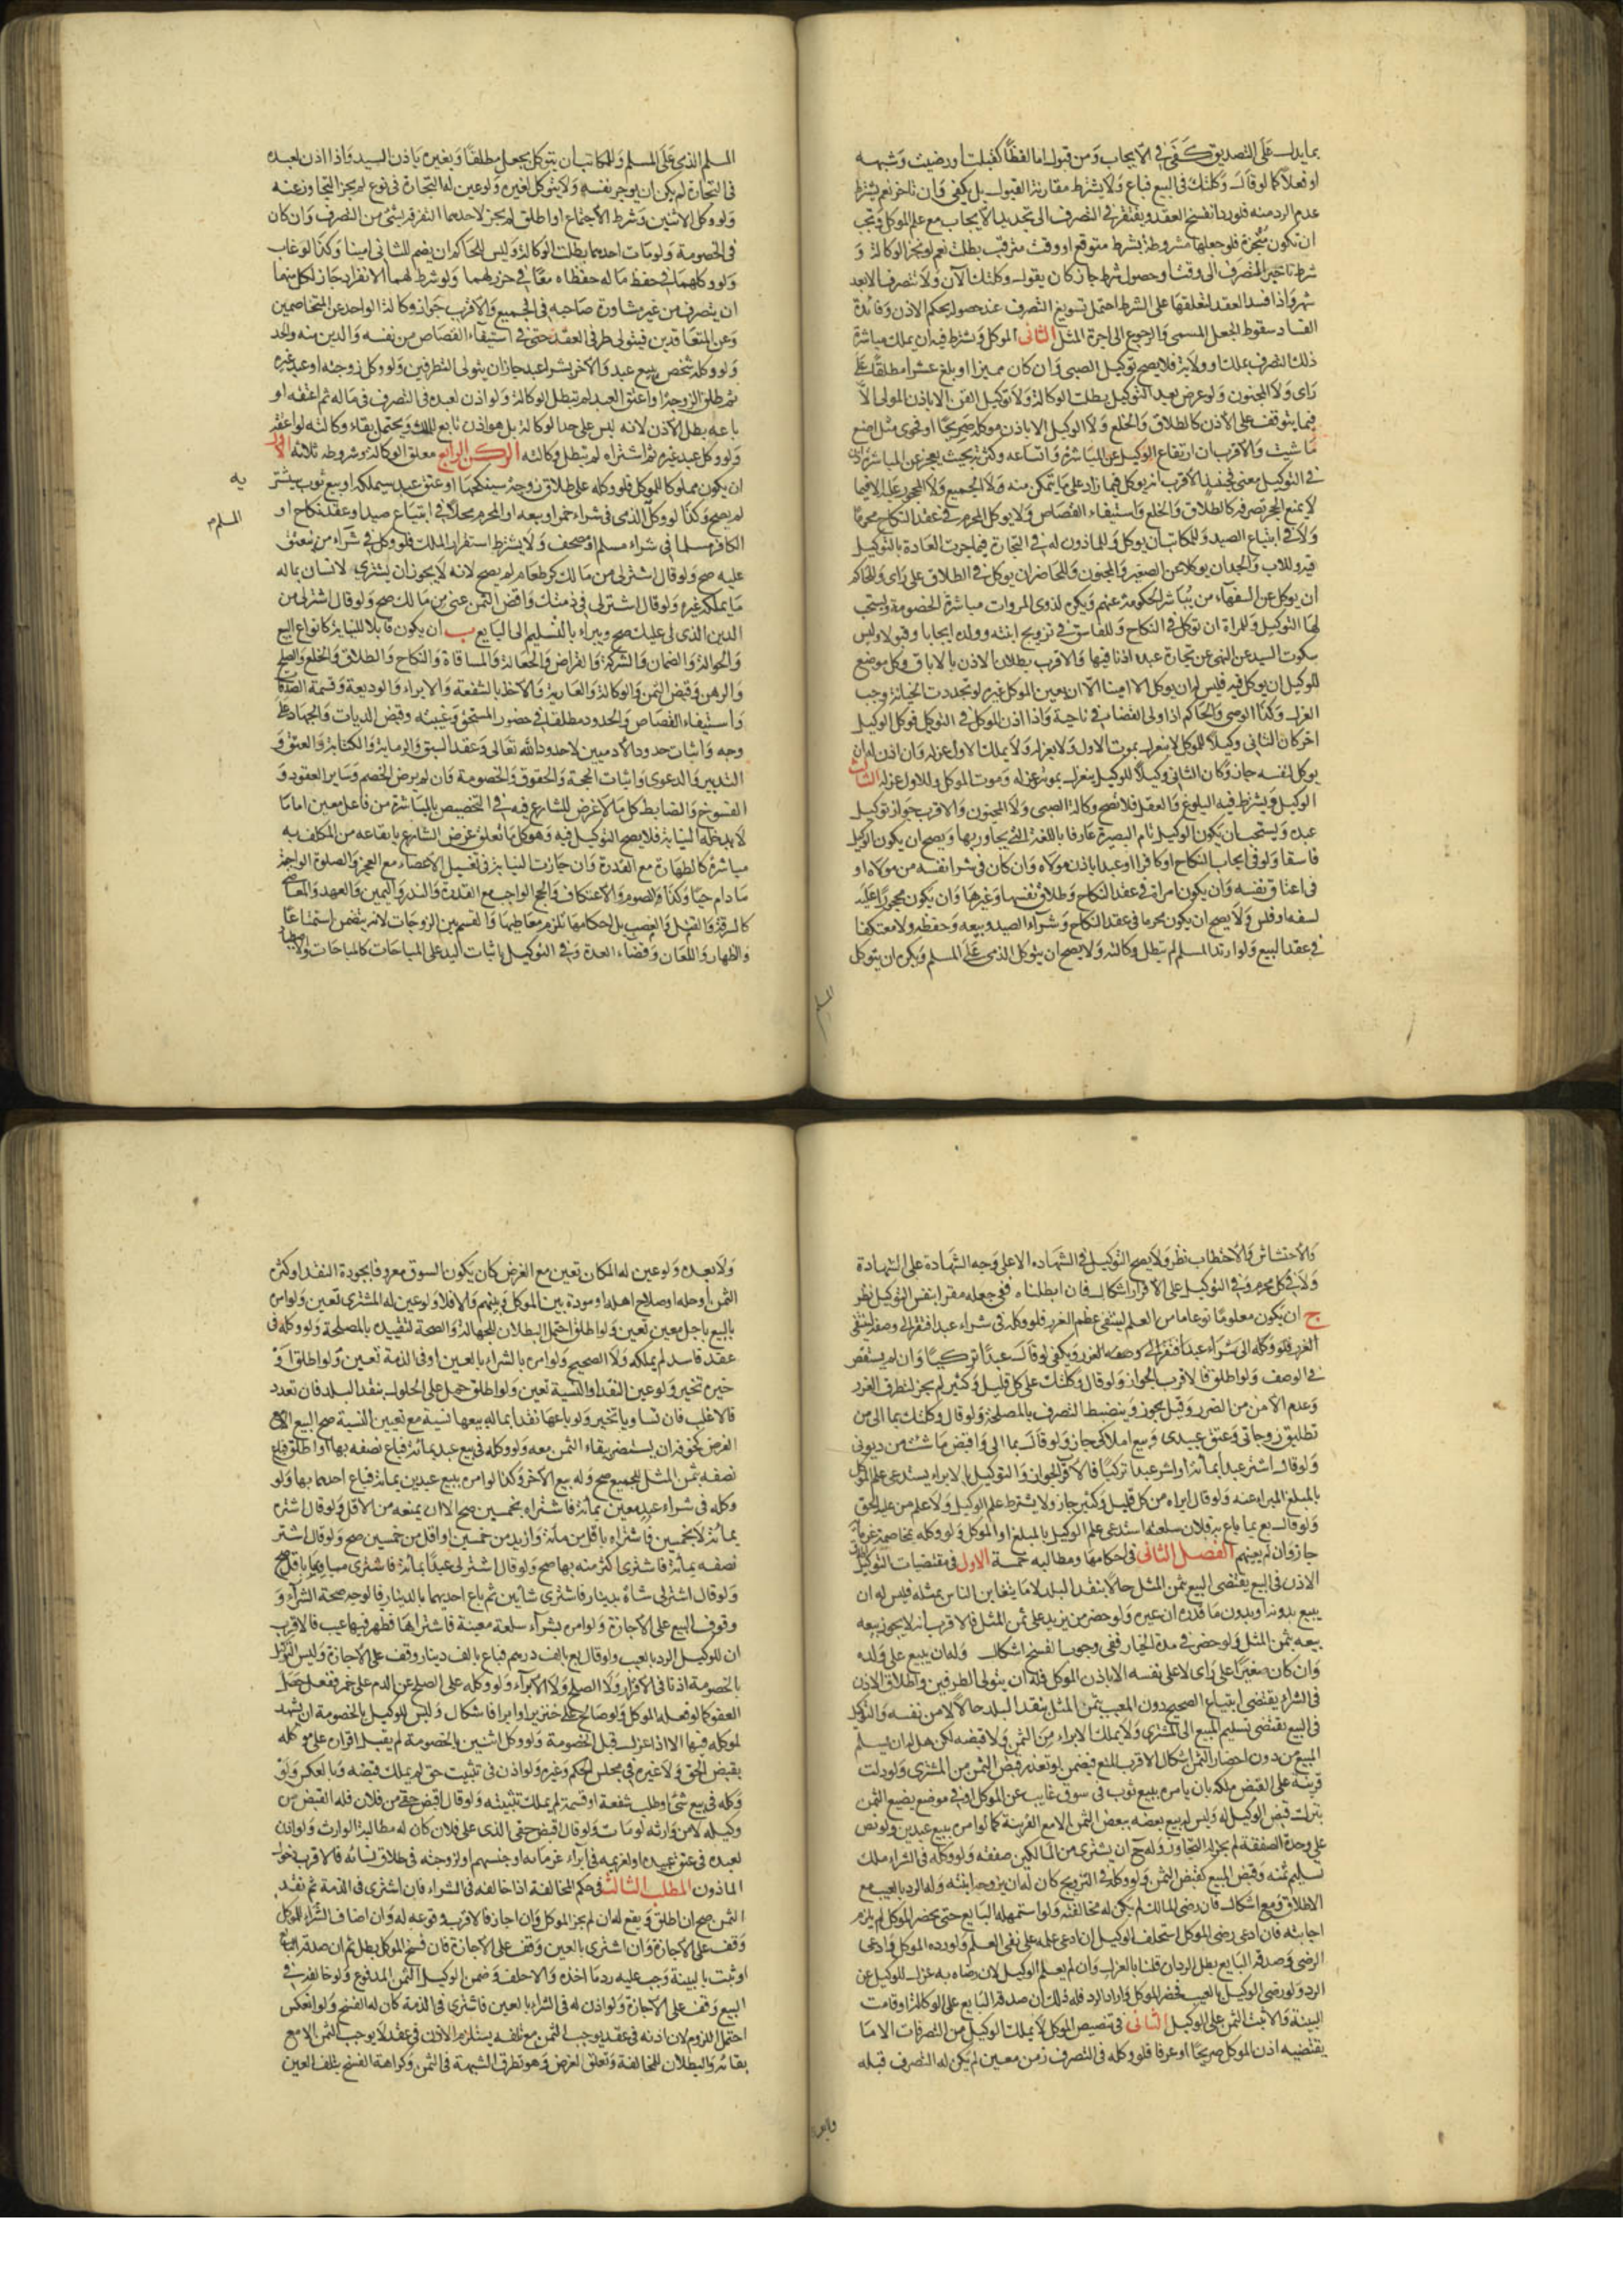 بما يدل على التصديق كفى في الايجاب ومن قبول اما لفظا كقبلت او رضيت وشبهه
او فعلا كما لو قال وكلتك في البيع فباع ولا يشترط مقارنة القبول بل يكفي وان تاخر نعم يشترط
عدم الرد منه فلو رد انفسخ العقد ويفتقر في التصرف الى تجديد الايجاب مع علم الموكل ويجب
ان تكون منجزة فلو جعلها مشروطة بشرط متوقع او وقت مترقب بطلت نعم لو نجز الوكالة و
شرط تاخير التصرف الى وقت او حصول شرط جاز كان يقول وكلتك الآن ولا تتصرف الا بعد
شهر واذا فسد العقد لتعلقها على الشرط احتمل تسويغ التصرف عند حصوله بحكم الاذن وفائدة
الفساد سقوط الجعل المسمى والرجوع الى اجرة المثل الثاني الموكل ويشترط فيه ان يملك مباشرة
ذلك التصرف بملك او ولاية فلا يصح توكيل الصبي وان كان مميزا او بلغ عشرا مطلقا على
راى ولا المجنون ولو عرض بعد التوكيل بطلت الوكالة ولا توكيل القن الا باذن المولى الا
فيما يتوقف على الاذن كالطلاق والخلع ولا الوكيل الا باذن موكله صريحا او فحوى مثل اصنع
ما شئت والاقرب ان ارتفاع الوكيل عن المباشرة واتساعه وكثرته بحيث يعجز عن المباشرة اذن
في التوكيل معنى فحينئذ الاقرب انه يوكل فيما زاد على ما يتمكن منه ولا الجميع ولا المحجور عليه الا فيما
لا يمنع الحجر تصرفه كالطلاق والخلع واستيفاء القصاص ولا يوكل المحرم في عقد النكاح محرما
ولا في ابتياع الصيد وللمكاتب ان يوكل وللماذون له في التجارة فيما جرت العادة بالتوكيل
فيه وللاب والجد ان يوكلا عن الصغير والمجنون وللحاضر ان يوكل في الطلاق على راى وللحاكم
ان يوكل عن السفهاء من يباشر الحكومة عنهم ويكره لذوى المروات مباشرة الخصومة ويستحب
لها التوكيل وللمراة ان توكل في النكاح وللفاسق في تزويج ابنته وولده ايجابا وقبولا وليس
سكوت السيد عن النهي عن تجارة عبده اذنا فيها والاقرب بطلان الاذن بالاباق وكل موضع
للوكيل ان يوكل فيه فليس له ان يوكل الا امينا الا ان يعين الموكل غيره ولو تجددت الخيانة وجب
العزل وكذا الوصي والحاكم اذا ولى القضاء في ناحية واذا اذن الموكل في التوكيل فوكل الوكيل
اخر كان الثاني وكيلا للموكل لا ينعزل بموت الاول ولا بعزله ولا يملك الاول عزله وان اذن له ان
يوكل لنفسه جاز وكان الثاني وكيلا للوكيل ينعزل بموته وعزله وموت الموكل وللاول عزله الثالث
الوكيل ويشترط فيه البلوغ والعقل فلا تصح وكالة الصبي ولا المجنون والاقرب جواز توكيل
عبده ويستحب ان يكون الوكيل تام البصيرة عارفا باللغة التي يحاور بها ويصح ان يكون الوكيل
فاسقا ولو في ايجاب النكاح او كافرا او عبدا باذن مولاه وان كان في شرا نفسه من مولاه او
في اعتاق نفسه وان يكون امراة في عقد النكاح وطلاق نفسها وغيرها وان يكون محجورا عليه
لسفه او فلس ولا يصح ان يكون محرما في عقد النكاح وشراء الصيد وبيعه وحفظه ولا معتكفا
في عقد البيع ولو ارتد المسلم لم تبطل وكالته ولا يصح ان يتوكل الذمي على المسلم ويكره ان يتوكل
المسلم
المسلم الذمي على المسلم وللمكاتب ان يتوكل بجعل مطلقا وبغيره باذن السيد واذا اذن لعبده
في التجارة لم يكن ان يوجر نفسه ولا يتوكل لغيره ولو عين له التجارة في نوع لم يجز التجاوز عنه
ولو وكل الاثنين وشرط الاجتماع او اطلق لم يجز لاحدهما التفرد بشئ من التصرف وان كان
في الخصومة ولو مات احدهما بطلت الوكالة وليس للحاكم ان يضم للثاني امينا وكذا لو غاب
ولو وكلهما في حفظ ماله حفظاه معا في حرز لهما ولو شرط لهما الانفراد جاز لكل منهما
ان يتصرف من غير مشاورة صاحبه في الجميع والاقرب جواز وكالة الواحد عن المتخاصمين
وعن المتعاقدين فيتولى طرفي العقد حتى في استيفاء القصاص من نفسه والدين منه والحد
ولو وكله شخص ببيع عبد والاخر بشراء عبد جاز ان يتولى الطرفين ولو وكل زوجته او عبد غيره
ثم طلق الزوجة او اعتق العبد لم تبطل الوكالة ولو اذن لعبده في التصرف في ماله ثم اعتقه او
باعه بطل الاذن لانه ليس على حد الوكالة بل هو اذن تابع للملك ويحتمل بقاء وكالته لو اعتقه
ولو وكل عبد غيره ثم اشتراه لم تبطل وكالته الركن الرابع معلق الوكالة وشروطه ثلاثة الا
ان يكون مملوكا للموكل فلو وكله على طلاق زوجة سينكحها او عتق عبد سيملكه او بيع ثوب سيشتريه
لم يصح وكذا لو وكل الذمي في شراء خمر او بيعه او المحرم محلا في ابتياع صيد او عقد نكاح او
الكافر مسلما في شراء مسلم او مصحف ولا يشترط استقرار الملك فلو وكل في شراء من ينعتق
عليه صح ولو قال اشتر لي من مالك كر طعام لم يصح لانه لا يجوز ان يشترى الانسان بماله
ما يملكه غيره ولو قال اشتر لي في ذمتك واقض الثمن عني من مالك صح ولو قال اشتر لي من
الدين الذي لي عليك صح ويبراء بالتسليم الى البايع ب ان يكون قابلا للنيابة كانواع البيع
والحوالة والضمان والشركة والقراض والجعالة والمساقاة والنكاح والطلاق والخلع والصلح
والرهن وقبض الثمن والوكالة والعارية والاخذ بالشفعة والابراء والوديعة وقسمة الصدقات
واستيفاء القصاص والحدود مطلقا في حضور المستحق وغيبته وقبض الديات والجهاد على
وجه واثبات حدود الادميين لا حدود الله تعالى وعقد السبق والرماية والكتابة والعتق و
التدبير والدعوى واثبات الحجة والحقوق والخصومة وان لم يرض الخصم وساير العقود و
الفسوخ والضابط كل ما لا غرض للشارع فيه في التخصيص بالمباشرة من فاعل معين اما ما
لا يدخله النيابة فلا يصح التوكيل فيه وهو كل ما تعلق غرض الشارع بايقاعه من المكلف به
مباشرة كالطهارة مع القدرة وان جازت النيابة في تغسيل الاعضاء مع العجز والصلوة الواجبة
ما دام حيا وكذا الصوم والاعتكاف والحج الواجب مع القدرة والنذر واليمين والعهد والمعاصي
كالسرقة والقتل والغصب بل احكامها تلزم متعاطيها والقسم بين الزوجات لانه يتضمن استمتاعا
والظهار واللعان وقضاء العدة وفي التوكيل باثبات اليد على المباحات كالمباحات
به
المسلم
والاحتشاش والاحتطاب نظر ولا يصح التوكيل في الشهادة الا على وجه الشهادة على الشهادة
ولا في كل محرم وفي التوكيل على الاقرار اشكال فان ابطلناه ففي جعله مقرا بنفس التوكيل نظر
ج ان يكون معلوما نوعا ما من العلم لينتفي عظم الغرر فلو وكله في شراء عبد افتقر الى وصفه لينتفي
الغرر فلو وكله الى شراء عبد افتقر الى وصفه للغرر ويكفي لو قال عبدا تركيا وان لم يستقص
في الوصف ولو اطلق فالاقرب الجواز ولو قال وكلتك على كل قليل وكثير لم يجز لتطرق الغرر
وعدم الامن من الضرر وقيل يجوز وينضبط التصرف بالمصلحة ولو قال وكلتك بما الي من
تطليق زوجاتي وعتق عبيدي وبيع املاكي جاز ولو قال بما الي واقبض ما شئت من ديوني
ولو قال اشتر عبدا بمائة او اشتر عبدا تركيا فالاقرب الجواز والتوكيل بالابراء يستدعي علم الموكل
بالمبلغ المبراء عنه ولو قال ابراه من كل قليل وكثير جاز ولا يشترط علم الوكيل ولا علم من عليه الحق
ولو قال بع بما باع به فلان سلعته استدعى علم الوكيل بالمبلغ او الموكل ولو وكله بمخاصمة غرمائه
جاز وان لم يعينهم الفصل الثاني في احكامها ومطالبه خمسة الاول في مقتضيات التوكيل
الاذن في البيع يقتضي البيع بثمن المثل حالا بنقد البلد الا ما يتغابن الناس بمثله فليس له ان
يبيع بدونه او بدون ما قدره ان عين ولو حضر من يزيد على ثمن المثل فالاقرب انه لا يجوز بيعه
بيعه بثمن المثل ولو حضر في مدة الخيار ففي وجوب الفسخ اشكال وله ان يبيع على ولده
وان كان صغيرا على راى لا على نفسه الا باذن الموكل فله ان يتولى الطرفين واطلاق الاذن
في الشراء يقتضي ابتياع الصحيح دون المعيب بثمن المثل بنقد البلد حالا لا من نفسه والتوكيل
في البيع يقتضي تسليم المبيع الى المشتري ولا يملك الابراء من الثمن ولا قبضه لكن هل له ان يسلم
المبيع من دون احضار الثمن اشكال الاقرب المنع فيضمن لو تعذر قبض الثمن من المشتري ولو دلت
قرينة على القبض ملكه بان يامره ببيع ثوب في سوق غايب عن الموكل او في موضع يضيع الثمن
بترك قبض الوكيل له وليس له بيع بعضه ببعض الثمن الا مع القرينة كما لو امره ببيع عبدين ولو نص
على وحدة الصفقة لم يجز له التجاوز وله ح ان يشترى من المالكين صفقة ولو وكله في الشراء ملك
تسليم ثمنه وقبض المبيع كقبض الثمن ولو وكله في التزويج كان له ان يزوجه ابنته وله الرد بالعيب مع
الاطلاق ومع اشكال فان رضى المالك لم يكن له مخالفته ولو استمهله البايع حتى يحضر الموكل لم يلزم
اجابته فان ادعى رضى الموكل استحلف الوكيل ان ادعى علمه على نفي العلم ولو رده الموكل وادعى
الرضى وصدقه البايع بطل الرد ان قلنا بالعزل وان لم يعلم الوكيل لان رضاه به عزل للوكيل عن
الرد ولو رضى الوكيل بالعيب فحضر الموكل واراد الرد فله ذلك ان صدقه البايع على الوكالة او قامت
البينة والا ثبت الثمن على الوكيل الثاني في تنصيص الموكل لا يملك الوكيل من التصرفات الا ما
يقتضيه اذن الموكل صريحا او عرفا فلو وكله في التصرف زمن معين لم يكن له التصرف قبله
ولا بعده ولو عين له المكان تعين مع الغرض كان يكون السوق معروفا بجودة النقد او كثرة
الثمن او حله او صلاح اهله او مودة بين الموكل وبينهم والا فلا ولو عين له المشتري تعين ولو امره
بالبيع باجل معين تعين ولو اطلق احتمل البطلان للجهالة والصحة لتقييده بالمصلحة ولو وكله في
عقد فاسد لم يملكه ولا الصحيح ولو امره بالشراء بالعين او في الذمة تعين ولو اطلق او
خيره تخير ولو عين النقد او النسية تعين ولو اطلق حمل على الحلول بنقد البلد فان تعدد
فالاغلب فان تساويا تخير ولو باعها نقدا بما له بيعها نسية مع تعيين النسية صح البيع الا مع
الغرض كخوفه ان يستضر ببقاء الثمن معه ولو وكله في بيع عبد بمائة فباع نصفه بها او اطلق فباع
نصفه بثمن المثل للجميع صح وله بيع الاخر وكذا لو امره ببيع عبدين بمائة فباع احدهما بها ولو
وكله في شراء عبد معين بمائة فاشتراه بخمسين صح الا ان يمنعه من الاقل ولو قال اشتره
بمائة لا بخمسين فاشتراه باقل من مائة وازيد من خمسين او اقل من خمسين صح ولو قال اشتر
نصفه بمائة فاشترى اكثر منه بها صح ولو قال اشتر لي عبدا بمائة فاشترى مساويها باقل صح
ولو قال اشتر لي شاة بدينار فاشترى شاتين ثم باع احديهما بالدينار فالوجه صحة الشراء و
وقوف البيع على الاجازة ولو امره بشراء سلعة معينة فاشتراها فظهر فيها عيب فالاقرب
ان للوكيل الرد بالعيب ولو قال بع بالف درهم فباع بالف دينار وقف على الاجازة وليس التوكيل
بالخصومة اذنا في الاقرار ولا الصلح ولا الابراء ولو وكله على الصلح عن الدم على خمر ففعل حصل
العفو كما لو فعله الموكل ولو صالح على خنزير او ابرا فاشكال وليس للوكيل بالخصومة ان يشهد
لموكله فيها الا اذا عزل قبل الخصومة ولو وكل اثنين بالخصومة لم يقبل اقراره على موكله
بقبض الحق ولا غيره في مجلس الحكم وغيره ولو اذن في تثبيت حق لم يملك قبضه وبالعكس ولو
وكله في بيع شئ او طلب شفعة او قسمة لم يملك تثبيته ولو قال اقبض حقي من فلان فله القبض من
وكيله لا من وارثه لو مات ولو قال اقبض حقي الذي على فلان كان له مطالبة الوارث ولو اذن
لعبده في عتق عبيده او لغريمه في ابراء غرمائه او حبسهم او لزوجته في طلاق نسائه فالاقرب دخول
الماذون المطلب الثالث في حكم المخالفة اذا خالفه في الشراء فان اشترى في الذمة ثم نقد
الثمن صح ان اطلق ويقع له ان لم يجز الموكل وان اجاز فالاقرب وقوعه له وان اضاف الشراء للموكل
وقف على الاجازة وان اشترى بالعين وقف على الاجازة فان فسخ الموكل بطل ثم ان صدقه البايع
او ثبت بالبينة وجب عليه رد ما اخذه والا حلف وضمن الوكيل الثمن المدفوع ولو خالفه في
البيع وقف على الاجازة ولو اذن له في الشراء بالعين فاشترى في الذمة كان له الفسخ ولو انعكس
احتمل اللزوم لان اذنه في عقد يوجب الثمن مع تلفه يستلزم الاذن في عقد لا يوجب الثمن الا مع
بقائه والبطلان للمخالفة وتعلق الغرض وهو تطرق الشبهة في الثمن وكراهة الفسخ بتلف العين